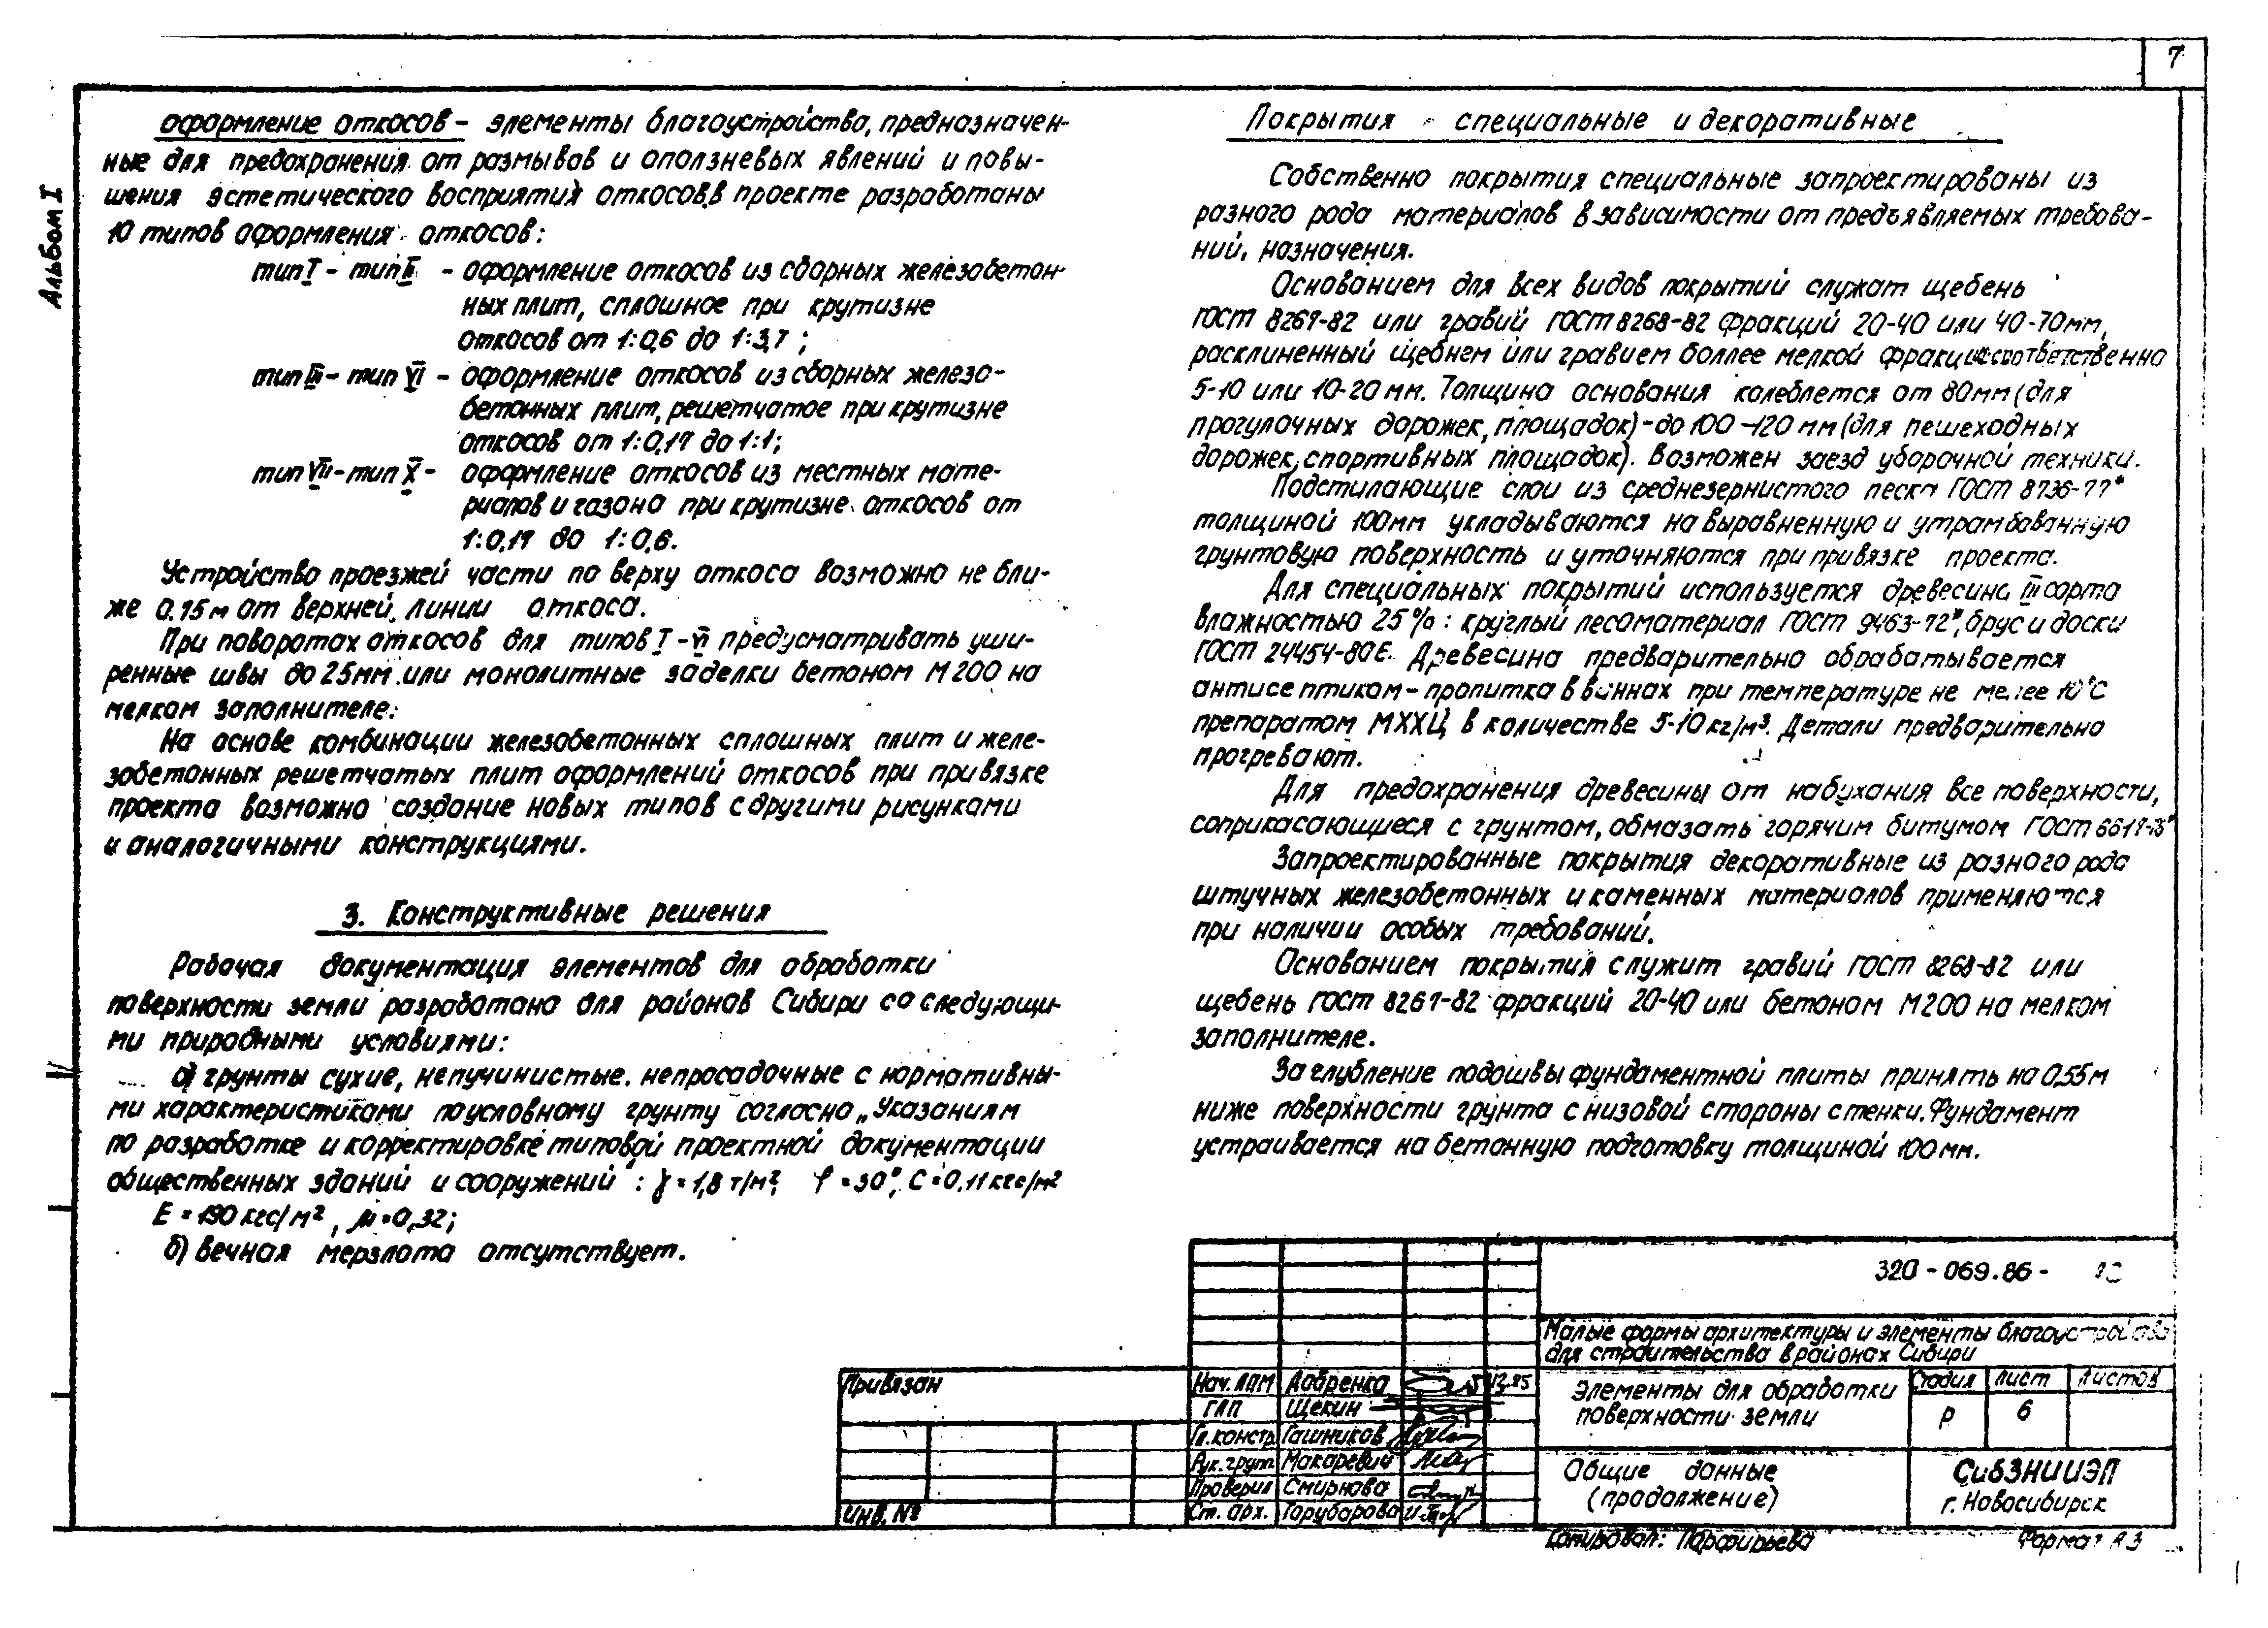 7
Альбом I
Оформление откосов - элементы благоустройства, предназначен-
ные для предохранения от размывов и оползневых явлений и повы-
шения эстетического восприятия откосов. В проекте разработаны
10 типов оформления откосов:
тип I - тип II - оформление откосов из сборных железобетон-
ных плит, сплошное при крутизне
откосов от 1:0,6 до 1:3,7 ;
тип III - тип VI - оформление откосов из сборных железо-
бетонных плит, решетчатое при крутизне
откосов от 1:0,17 до 1:1;
тип VII - тип X - оформление откосов из местных мате-
риалов и газона при крутизне откосов от
1:0,17 до 1:0,6.
Устройство проезжей части по верху откоса возможно не бли-
же 0,75 м от верхней линии откоса.
При поворотах откосов для типов I - VI предусматривать уши-
ренные швы до 25мм или монолитные заделки бетоном М200 на
мелком заполнителе.
На основе комбинации железобетонных сплошных плит и желе-
зобетонных решетчатых плит оформлений откосов при привязке
проекта возможно создание новых типов с другими рисунками
и аналогичными конструкциями.
3. Конструктивные решения
Рабочая документация элементов для обработки
поверхности земли разработана для районов Сибири со следующи-
ми природными условиями:
а) грунты сухие, непучинистые, непросадочные с нормативны-
ми характеристиками по условному грунту согласно „Указаниям
по разработке и корректировке типовой проектной документации
общественных зданий и сооружений": γ = 1,8 т/м², φ = 30°, С = 0,11 кгс/м²
Е = 190 кгс/м², μ = 0,32;
б) вечная мерзлота отсутствует.
Покрытия специальные и декоративные
Собственно покрытия специальные запроектированы из
разного рода материалов в зависимости от предъявляемых требова-
ний, назначения.
Основанием для всех видов покрытий служат щебень
ГОСТ 8267-82 или гравий ГОСТ 8268-82 фракций 20-40 или 40-70мм,
расклиненный щебнем или гравием боллее мелкой фракции соответственно
5-10 или 10-20 мм. Толщина основания колеблется от 80мм (для
прогулочных дорожек, площадок) - до 100-120 мм (для пешеходных
дорожек, спортивных площадок). Возможен заезд уборочной техники.
Подстилающие слои из среднезернистого песка ГОСТ 8736-77*
толщиной 100мм укладываются на выравненную и утрамбованную
грунтовую поверхность и уточняются при привязке проекта.
Для специальных покрытий используется древесина III сорта
влажностью 25%: круглый лесоматериал ГОСТ 9463-72*, брус и доски
ГОСТ 24454-80Е. Древесина предварительно обрабатывается
антисептиком - пропитка в ваннах при температуре не менее 10°С
препаратом МХХЦ в количестве 5-10 кг/м³. Детали предварительно
прогревают.
Для предохранения древесины от набухания все поверхности,
соприкасающиеся с грунтом, обмазать горячим битумом ГОСТ
Запроектированные покрытия декоративные из разного рода
штучных железобетонных и каменных материалов применяются
при наличии особых требований.
Основанием покрытия служит гравий ГОСТ 8268-82 или
щебень ГОСТ 8267-82 фракций 20-40 или бетоном М200 на мелком
заполнителе.
Заглубление подошвы фундаментной плиты принять на 0,55м
ниже поверхности грунта с низовой стороны стенки. Фундамент
устраивается на бетонную подготовку толщиной 100мм.
320 - 069.86 -
Малые формы архитектуры и элементы благоустройства
для строительства в районах Сибири
Привязан
Инв. №
Нач. ЛПМ Добренко 12.85
ГАП Щекин
Гл. констр. Гашников
Рук. групп. Макаревич
Проверил Смирнова
Ст. арх. Тарубарова
Элементы для обработки
поверхности земли
Стадия Лист Листов
Р 6
Общие данные
(продолжение)
СибЗНИИЭП
г. Новосибирск
Копировал: Парфирьева Формат А3